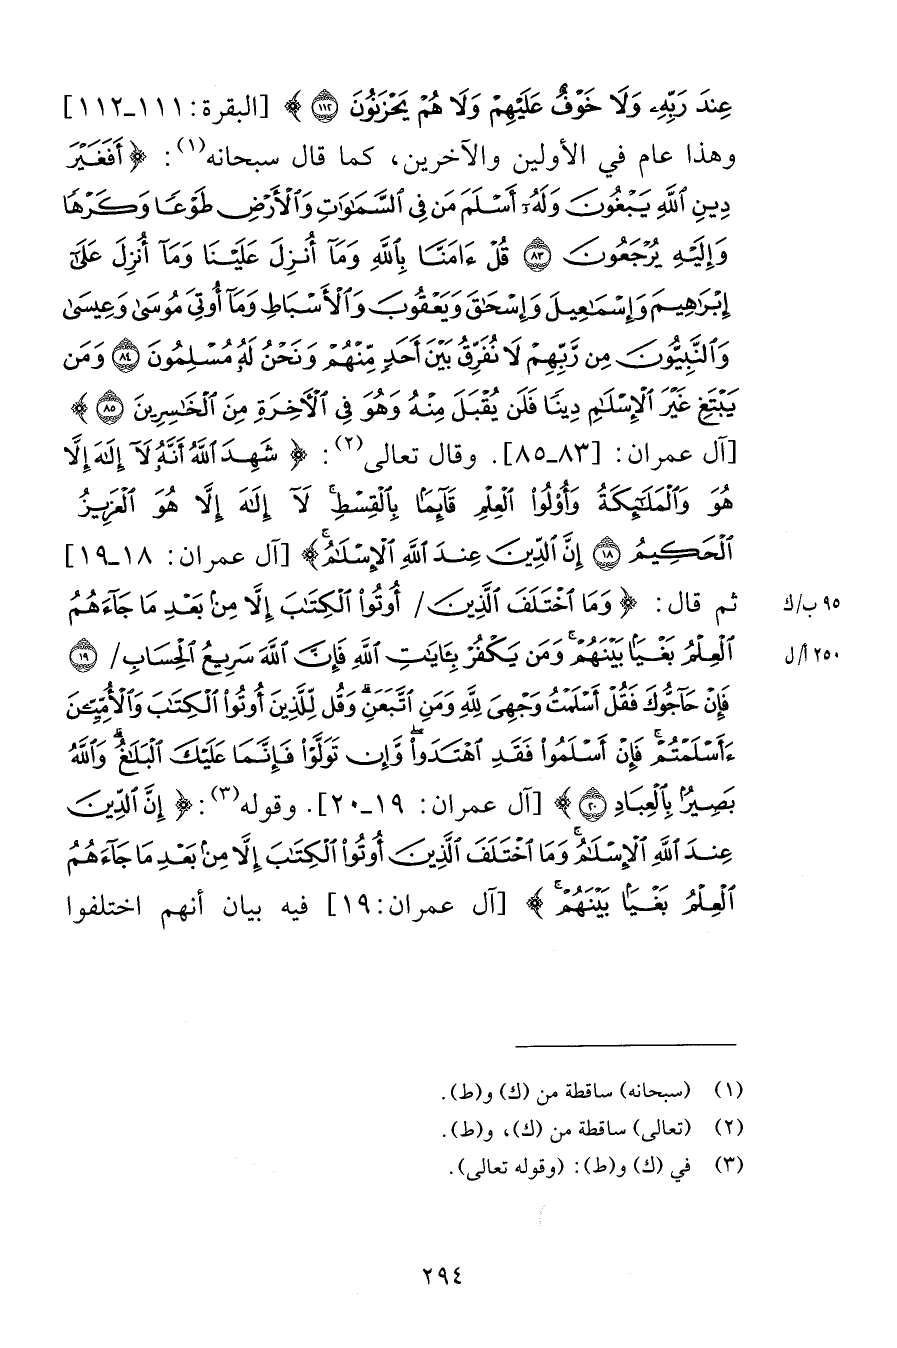 عِندَ رَبِّهِۦ وَلَا خَوْفٌ عَلَيْهِمْ وَلَا هُمْ يَحْزَنُونَ ﴿١١٢﴾ ﴾ [البقرة: ١١١ـ١١٢]
وهذا عام في الأولين والآخرين، كما قال سبحانه(١): ﴿ أَفَغَيْرَ
دِينِ ٱللَّهِ يَبْغُونَ وَلَهُۥٓ أَسْلَمَ مَن فِى ٱلسَّمَٰوَٰتِ وَٱلْأَرْضِ طَوْعًا وَكَرْهًا
وَإِلَيْهِ يُرْجَعُونَ ﴿٨٣﴾ قُلْ ءَامَنَّا بِٱللَّهِ وَمَآ أُنزِلَ عَلَيْنَا وَمَآ أُنزِلَ عَلَىٰٓ
إِبْرَٰهِيمَ وَإِسْمَٰعِيلَ وَإِسْحَٰقَ وَيَعْقُوبَ وَٱلْأَسْبَاطِ وَمَآ أُوتِىَ مُوسَىٰ وَعِيسَىٰ
وَٱلنَّبِيُّونَ مِن رَّبِّهِمْ لَا نُفَرِّقُ بَيْنَ أَحَدٍ مِّنْهُمْ وَنَحْنُ لَهُۥ مُسْلِمُونَ ﴿٨٤﴾ وَمَن
يَبْتَغِ غَيْرَ ٱلْإِسْلَٰمِ دِينًا فَلَن يُقْبَلَ مِنْهُ وَهُوَ فِى ٱلْآخِرَةِ مِنَ ٱلْخَٰسِرِينَ ﴿٨٥﴾ ﴾
[آل عمران: [٨٣ـ٨٥]. وقال تعالى(٢): ﴿ شَهِدَ ٱللَّهُ أَنَّهُۥ لَآ إِلَٰهَ إِلَّا
هُوَ وَٱلْمَلَٰٓئِكَةُ وَأُو۟لُوا۟ ٱلْعِلْمِ قَآئِمًۢا بِٱلْقِسْطِ ۚ لَآ إِلَٰهَ إِلَّا هُوَ ٱلْعَزِيزُ
ٱلْحَكِيمُ ﴿١٨﴾ إِنَّ ٱلدِّينَ عِندَ ٱللَّهِ ٱلْإِسْلَٰمُ ۗ﴾ [آل عمران: ١٨ـ١٩]
ثم قال: ﴿ وَمَا ٱخْتَلَفَ ٱلَّذِينَ / أُوتُوا۟ ٱلْكِتَٰبَ إِلَّا مِنۢ بَعْدِ مَا جَآءَهُمُ ٩٥ ب/ك
ٱلْعِلْمُ بَغْيًۢا بَيْنَهُمْ ۗ وَمَن يَكْفُرْ بِـَٔايَٰتِ ٱللَّهِ فَإِنَّ ٱللَّهَ سَرِيعُ ٱلْحِسَابِ / ﴿١٩﴾ ٢٥٠ أ/ل
فَإِنْ حَآجُّوكَ فَقُلْ أَسْلَمْتُ وَجْهِىَ لِلَّهِ وَمَنِ ٱتَّبَعَنِ ۗ وَقُل لِّلَّذِينَ أُوتُوا۟ ٱلْكِتَٰبَ وَٱلْأُمِّيِّـۧنَ
ءَأَسْلَمْتُمْ ۚ فَإِنْ أَسْلَمُوا۟ فَقَدِ ٱهْتَدَوا۟ ۖ وَّإِن تَوَلَّوْا۟ فَإِنَّمَا عَلَيْكَ ٱلْبَلَٰغُ ۗ وَٱللَّهُ
بَصِيرٌۢ بِٱلْعِبَادِ ﴿٢٠﴾ ﴾ [آل عمران: ١٩ـ٢٠]. وقوله(٣): ﴿ إِنَّ ٱلدِّينَ
عِندَ ٱللَّهِ ٱلْإِسْلَٰمُ ۗ وَمَا ٱخْتَلَفَ ٱلَّذِينَ أُوتُوا۟ ٱلْكِتَٰبَ إِلَّا مِنۢ بَعْدِ مَا جَآءَهُمُ
ٱلْعِلْمُ بَغْيًۢا بَيْنَهُمْ ۗ ﴾ [آل عمران: ١٩] فيه بيان أنهم اختلفوا
(١) (سبحانه) ساقطة من (ك) و(ط).
(٢) (تعالى) ساقطة من (ك)، و(ط).
(٣) في (ك) و(ط): (وقوله تعالى).
٢٩٤